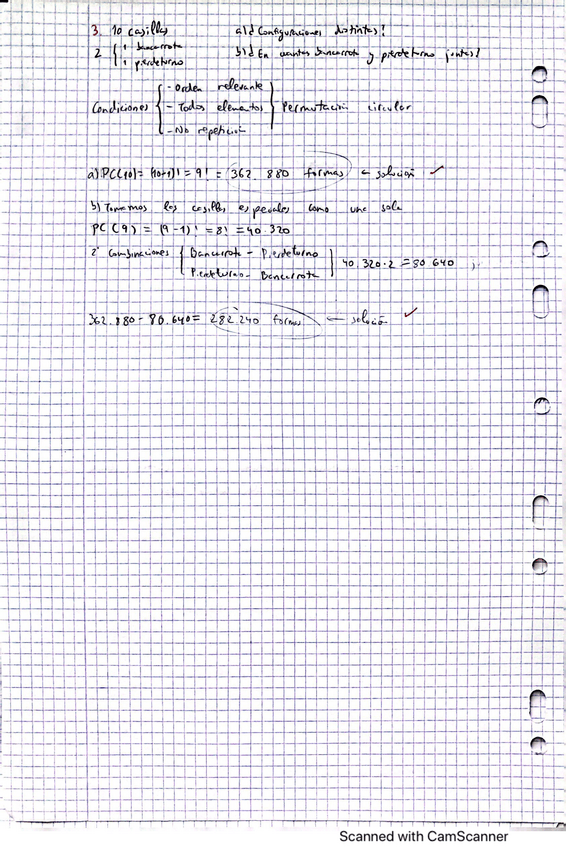 3. 10 casillas a) ¿Configuraciones distintas?
2 { 1 bancarrota
1 pierdeturno
b) ¿En cuantas bancarrota y pierdeturno juntas?
Condiciones { - Orden relevante
- Todos elementos
- No repetición } Permutación circular
a) PC(10) = (10-1)! = 9! = 362.880 formas ← solución ✓
b) Tomamos las casillas especiales como una sola
PC(9) = (9-1)! = 8! = 40.320
2 Combinaciones { Bancarrota - Pierdeturno
Pierdeturno - Bancarrota } 40.320·2 = 80 640
362.880 - 80.640 = 282.240 formas ← solución ✓
Scanned with CamScanner